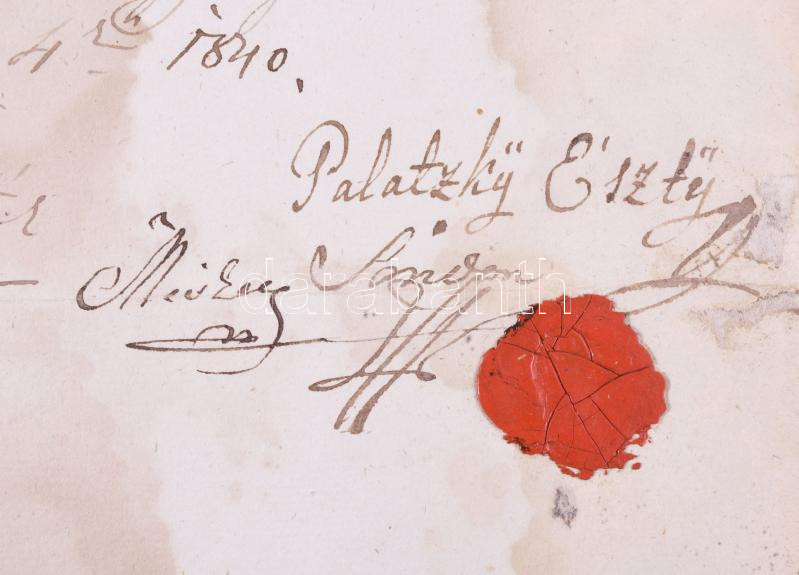 4 1840.
Palatzkÿ Esztÿ
Simon
darabanth